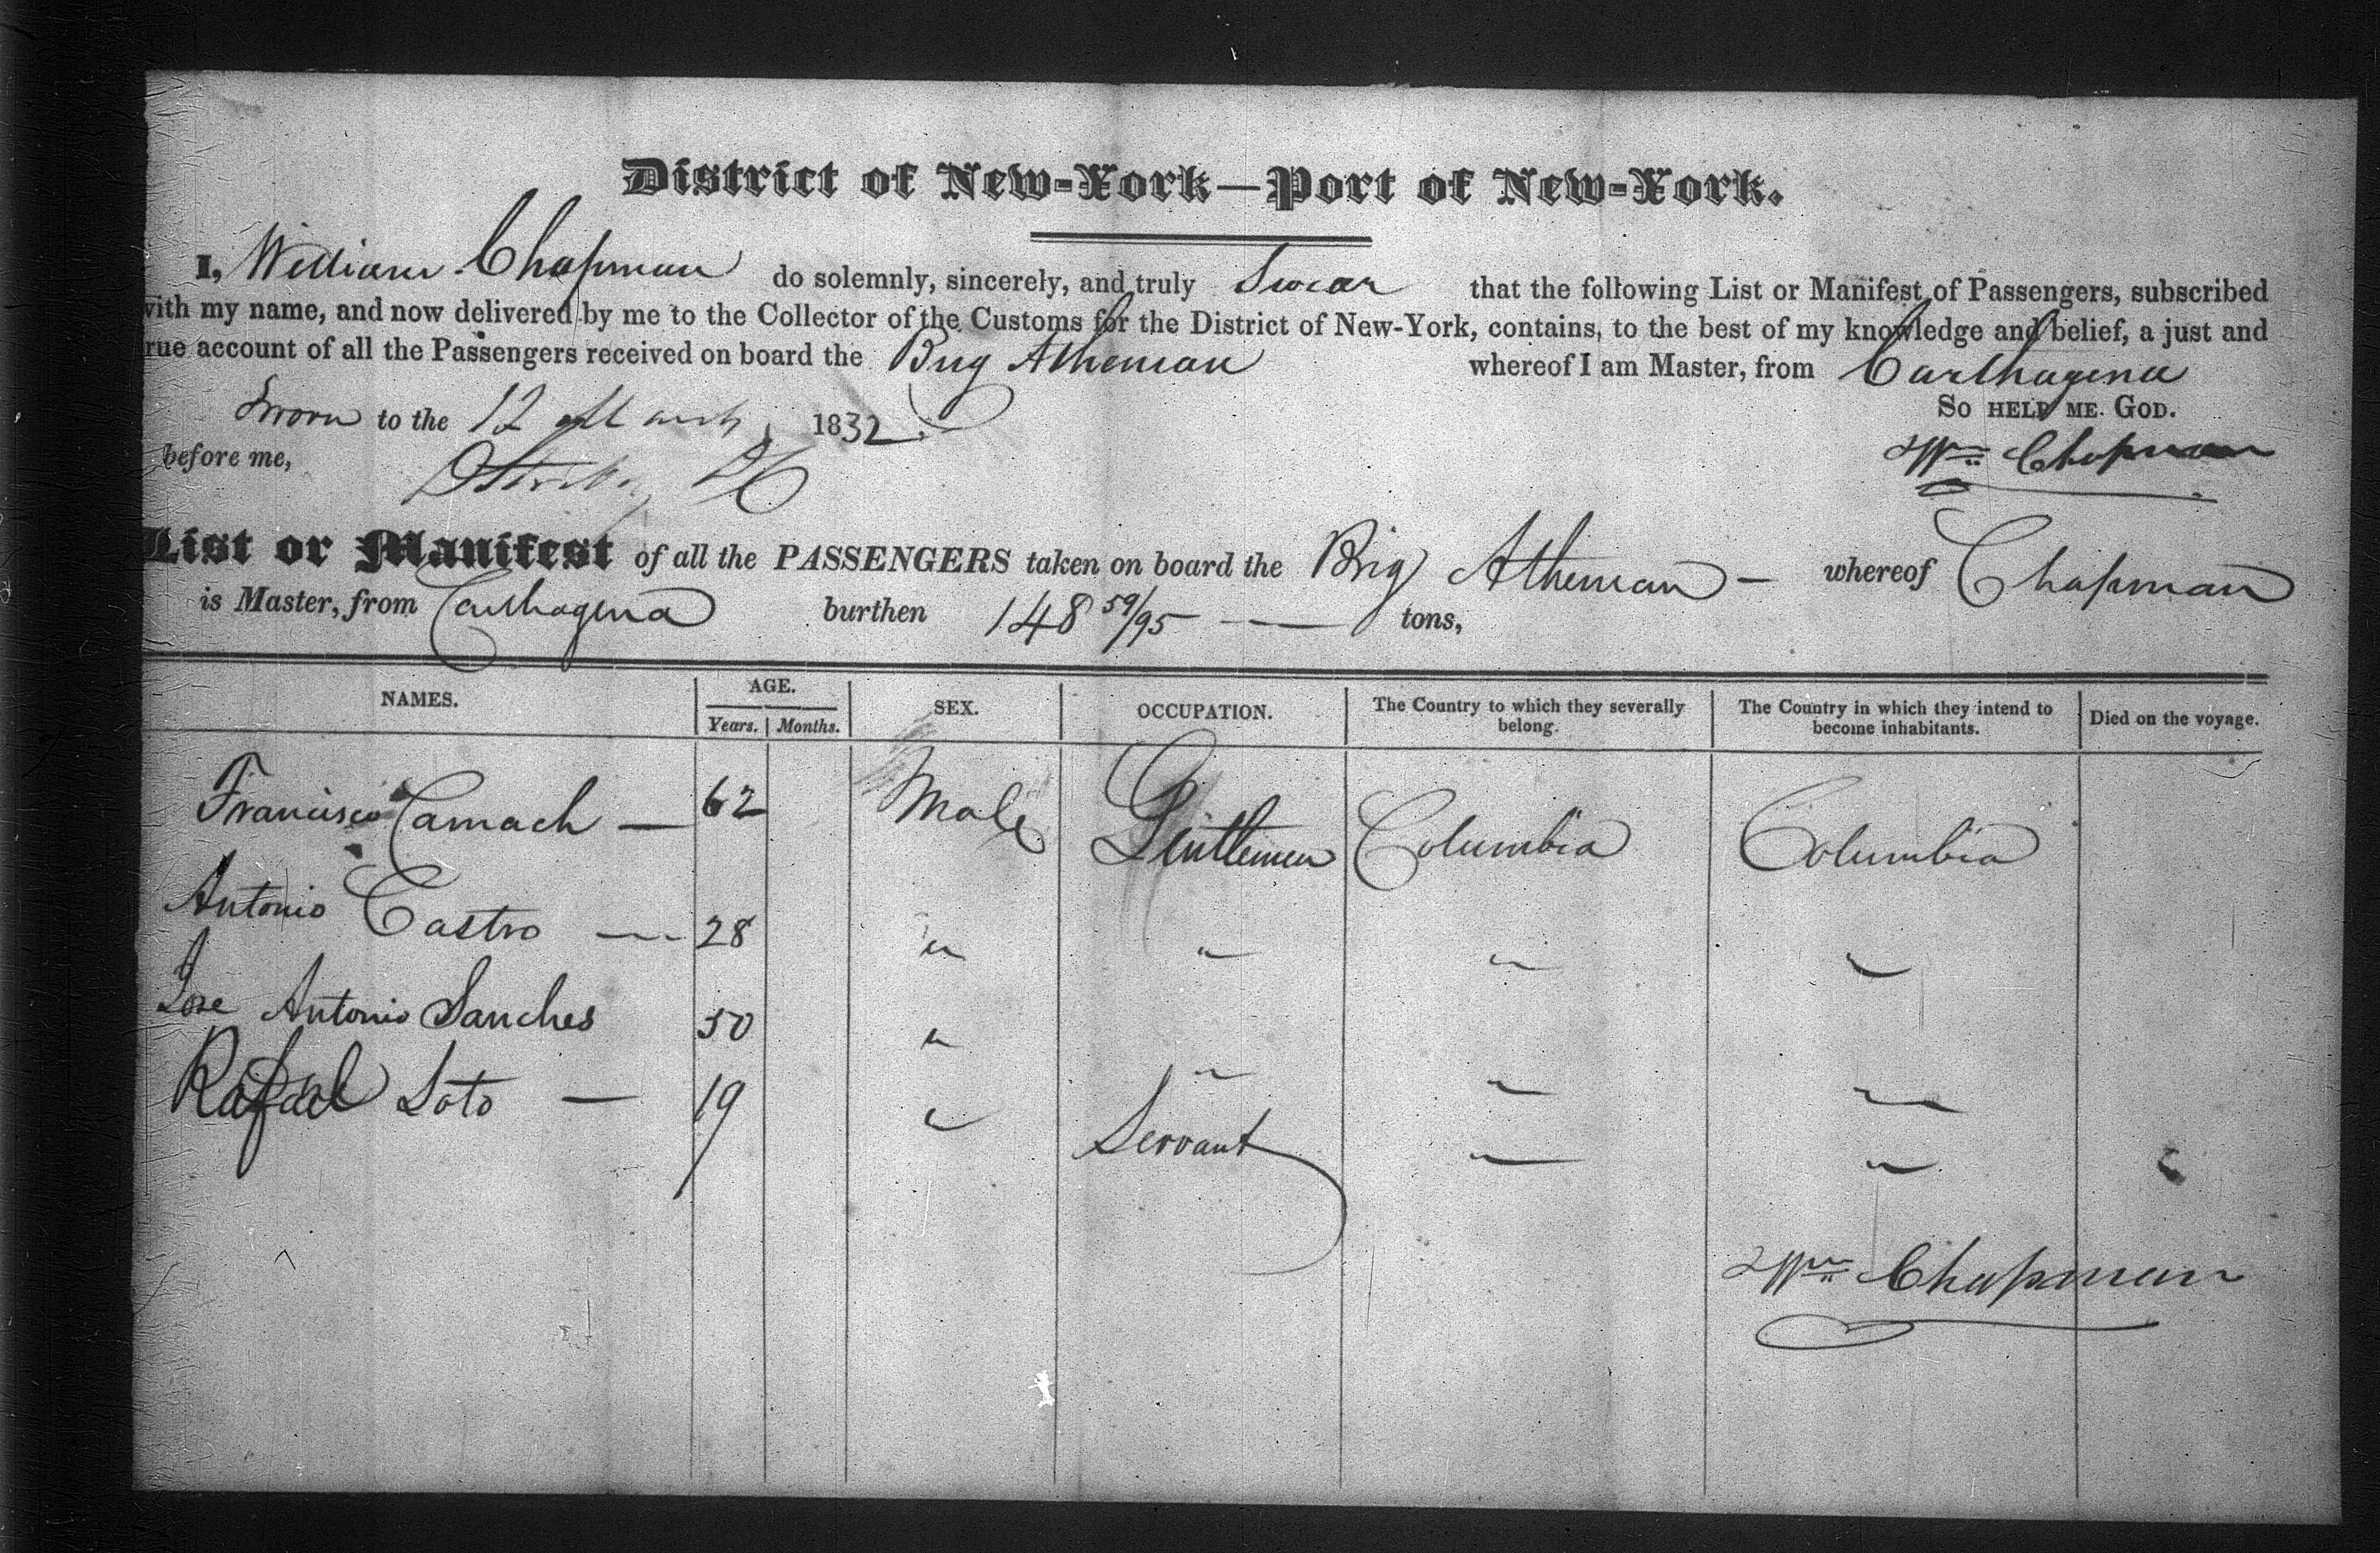 District of New-York—Port of New-York.
I, William Chapman do solemnly, sincerely, and truly Swear that the following List or Manifest of Passengers, subscribed
with my name, and now delivered by me to the Collector of the Customs for the District of New-York, contains, to the best of my knowledge and belief, a just and
rue account of all the Passengers received on board the Brig Athenian whereof I am Master, from Carthagena
Sworn to the 12 March 1832. So help me God.
before me, Wm Chapman
List or Manifest of all the PASSENGERS taken on board the Brig Athenian — whereof Chapman
is Master, from Carthagena burthen 148 59/95 — tons,
NAMES. AGE. Years. Months. SEX. OCCUPATION. The Country to which they severally belong. The Country in which they intend to become inhabitants. Died on the voyage.
Francisco Camach — 62 Male Gentlemen Columbia Columbia
Antonio Castro — 28 " " " "
Jose Antonio Sanches 50 " " " "
Rafael Soto — 19 " Servant " "
Wm Chapman